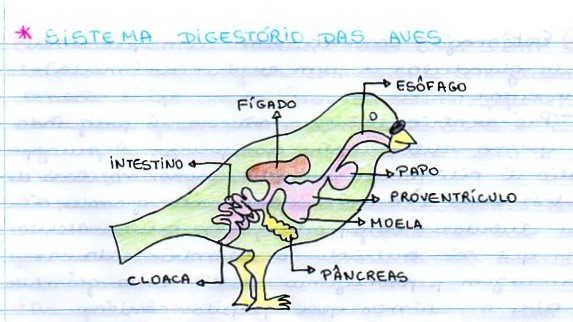 * SISTEMA DIGESTÓRIO DAS AVES
ESÔFAGO
FÍGADO
INTESTINO
PAPO
PROVENTRÍCULO
MOELA
CLOACA
PÂNCREAS